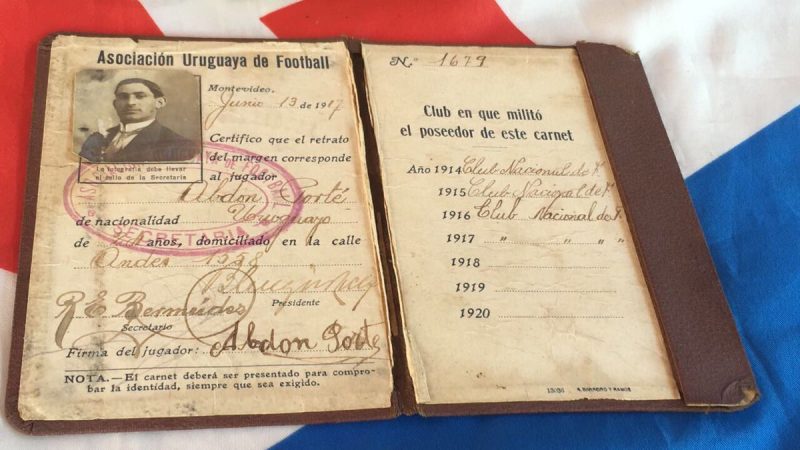 Asociación Uruguaya de Football
Montevideo,
Junio 13 de 1917
Certifico que el retrato
del margen corresponde
al jugador
La fotografía debe llevar
el sello de la Secretaría
Abdon Porté
de nacionalidad Uruguayo
de años, domiciliado en la calle
Andes 1558
Presidente
R E Bermúdes
Secretario
Firma del jugador: Abdon Porte
NOTA.—El carnet deberá ser presentado para compro-
bar la identidad, siempre que sea exigido.
SECRETARIA
N.º 1679
Club en que militó
el poseedor de este carnet
Año 1914 Club Nacional de F.
1915 Club Nacional de F.
1916 Club Nacional de F.
1917 " " "
1918
1919
1920